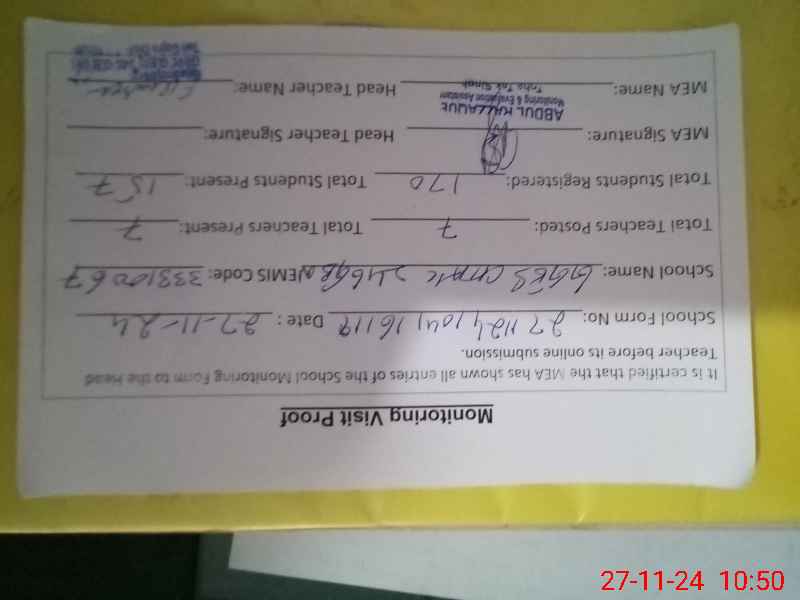 Monitoring Visit Proof
It is certified that the MEA has shown all entries of the School Monitoring Form to the Head
Teacher before its online submission.
School Form No: 271124104116119 Date: 27-11-24
School Name: GGES CHAK 246GB EMIS Code: 33310067
Total Teachers Posted: 7 Total Teachers Present: 7
Total Students Registered: 170 Total Students Present: 157
MEA Signature: Head Teacher Signature:
ABDUL
Monitoring & Evaluation Assistant
Toba Tek Singh
MEA Name: Head Teacher Name:
27-11-24 10:50